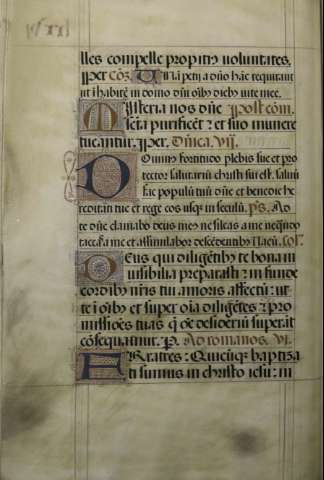 lxxvij
lles compelle propitiꝰ voluntates.
ꝑper Cõ. Unā petii a dño hāc requiram
ut ihabitē in domo dñi oībꝫ diebꝫ vite mee.
Misteria nos dñe ꝑpost cõm.
sc̄ta purificēt ꝛ suo munere
tueantur. ꝑper. Dñica. vij.
Dominus fortitudo plebis sue et pro
tector salutariū christi sui est. saluū
fac populū tuū dñe et benedic he
reditati tue et rege eos usqꝫ in seculū. p̄s. Ad
te dñe clamabo deus meus ne sileas a me neqñdo
taceas a me et assimilabor descēdentibꝫ ī lacū.
Deus qui diligētibꝫ te bona in
uisibilia preparasti ꝛ infunde
cordibꝫ nr̄is tui amoris affectū: ut
te ī oībꝫ et super oīa diligētes ꝛ pro
missiões tuas q̄ õe desideriū superāt
cōsequamur. p. Ad romanos. vi.
Fratres: Quicūqꝫ baptiza
ti sumus in christo iesu: in